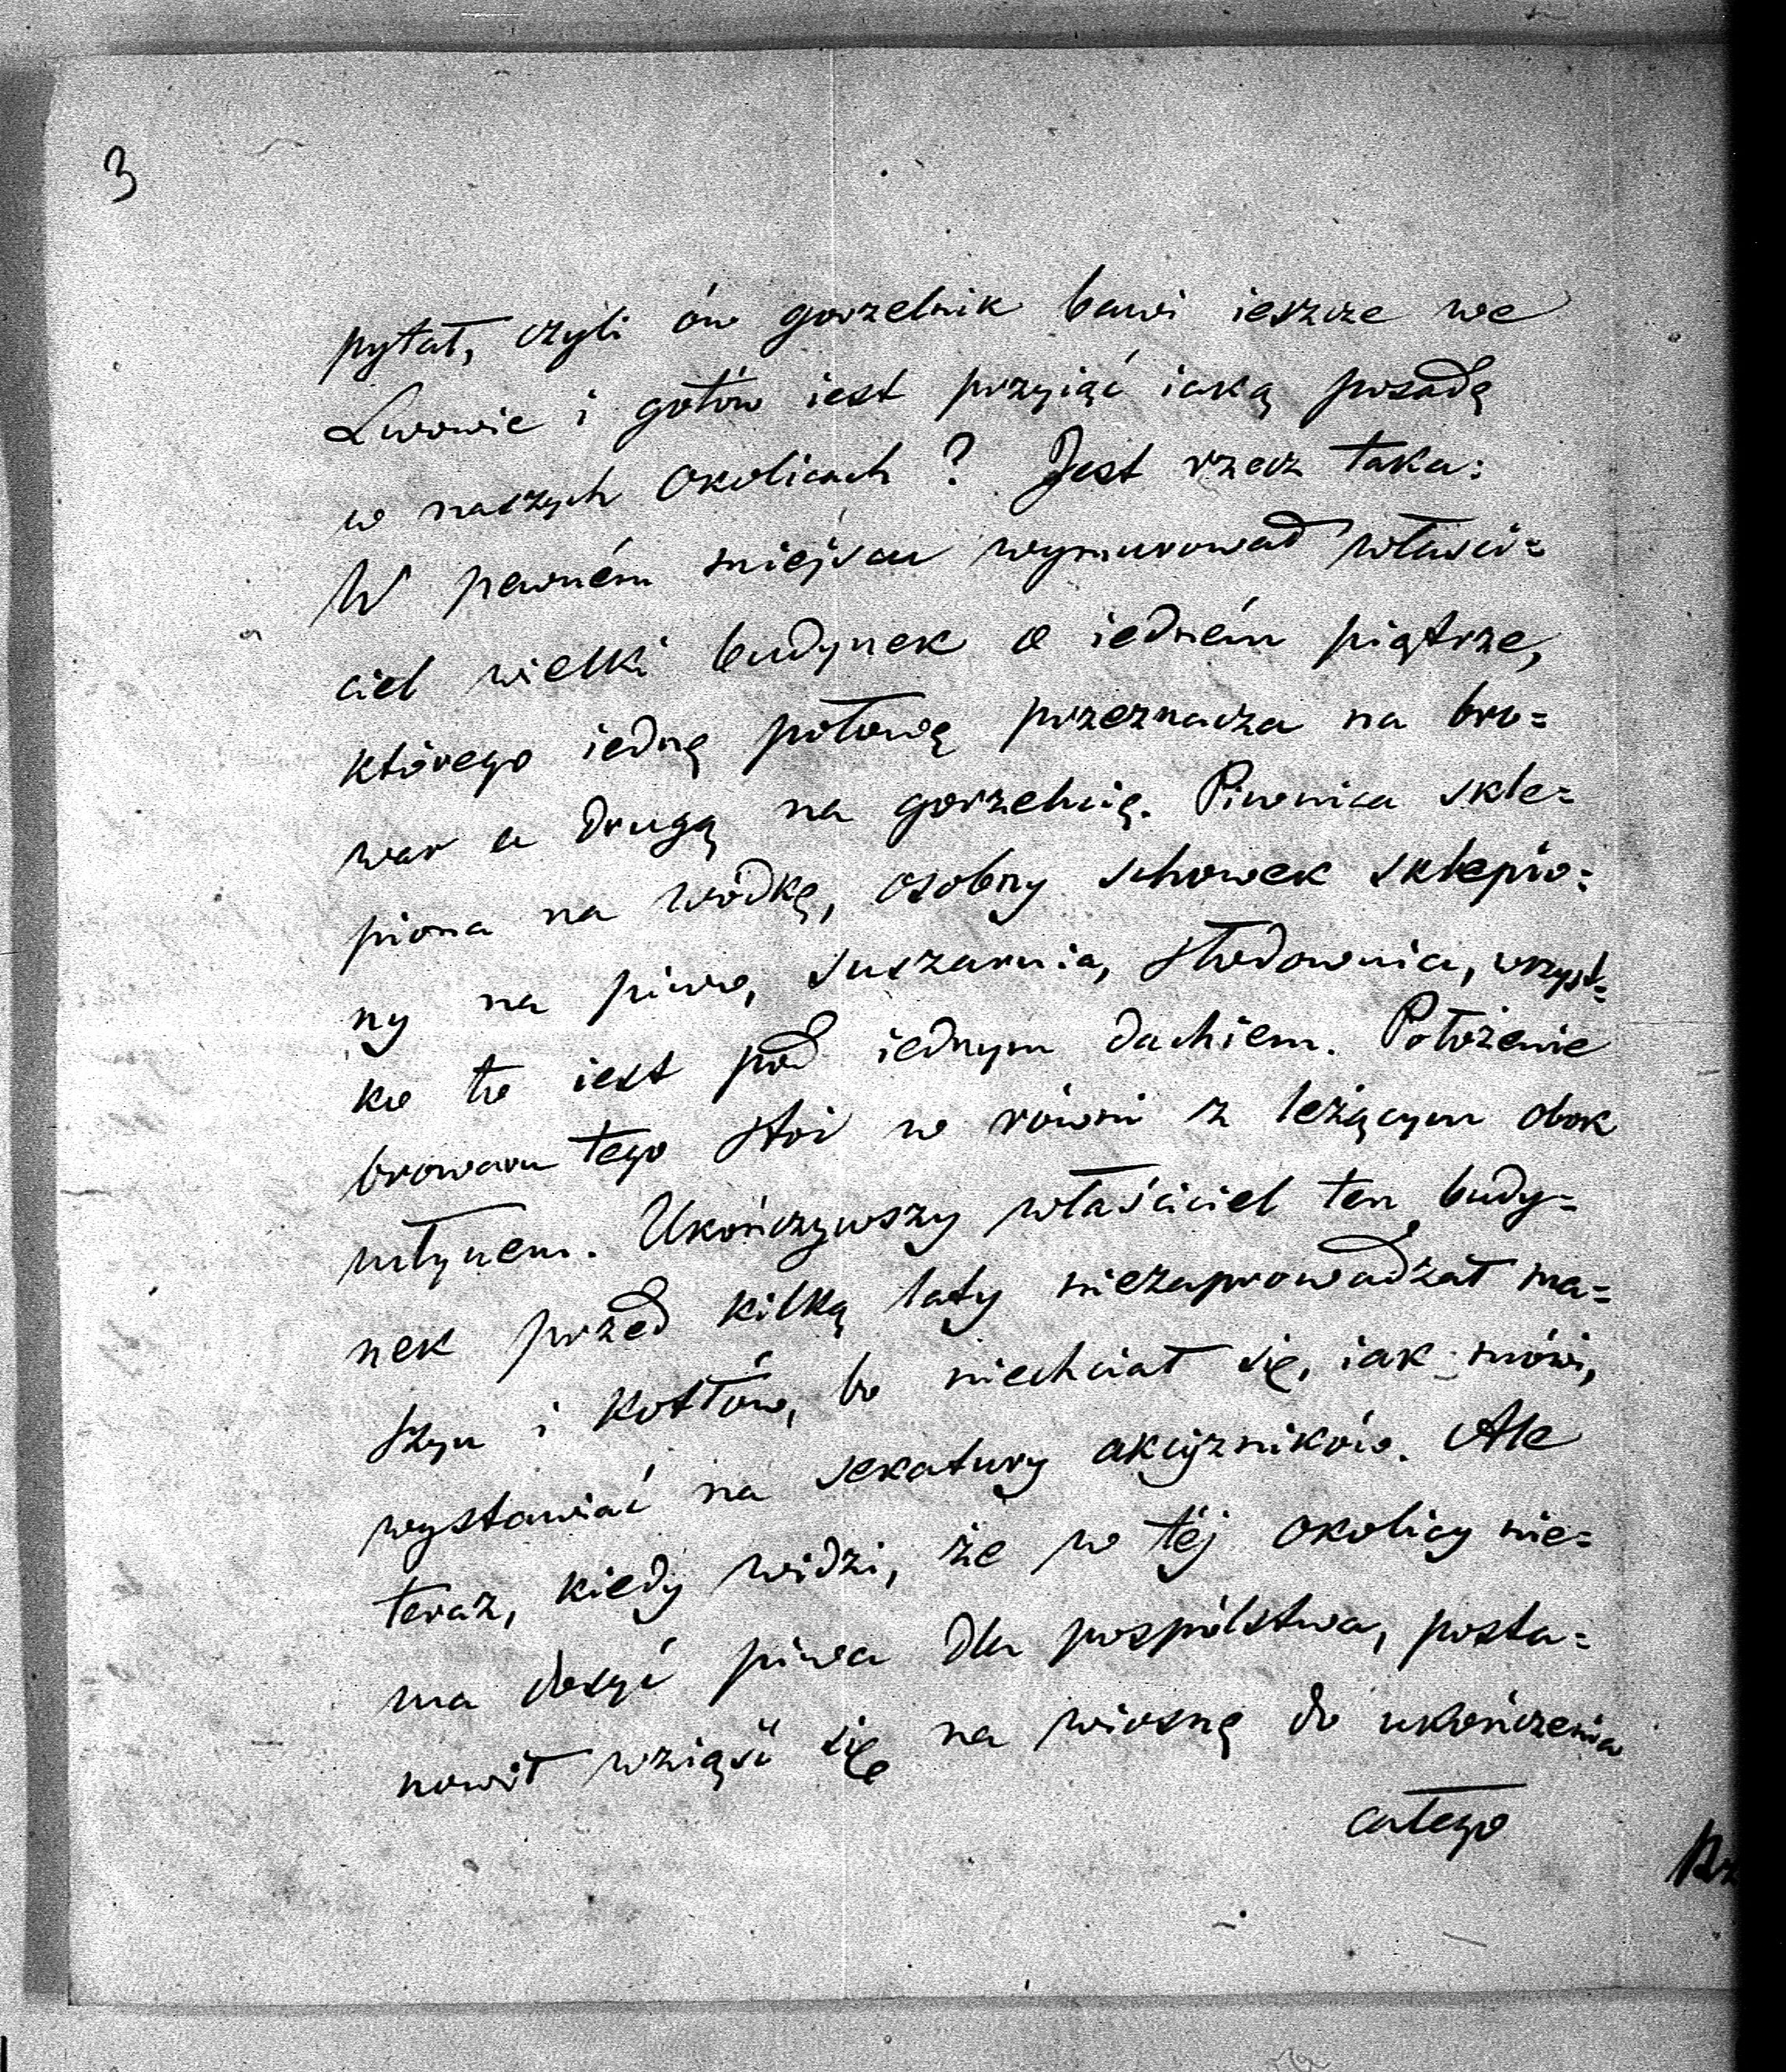 3
pytał, czyli ów gorzelnik bawi ieszcze we
Lwowie i gotów iest przyiąć iaką posadę
w naszych okolicach? Jest rzecz taka:
W pewném miéjscu wymurował właści=
ciel wielki budynek o iedném piątrze,
którego iednę połowę przeznacza na bro=
war a drugą na gorzelnię. Piwnica skle=
piona na wódkę, osobny schowek sklepio=
ny na piwo, suszarnia, słodownia, wszyst=
ko to iest pod iednym dachiem. Położenie
browaru tego stoi w równi z leżącym obok
młynem. Ukończywszy właściciel ten budy=
nek przed kilką laty niezaprowadzał ma=
szyn i kotłów, bo niechciał się, iak mówi,
wystawiać na sekatury akcyzników. Ale
teraz, kiedy widzi, że w téj okolicy nie=
ma dosyć piwa dla pospólstwa, posta=
nowił wziąść się na wiosnę do ukończenia
całego